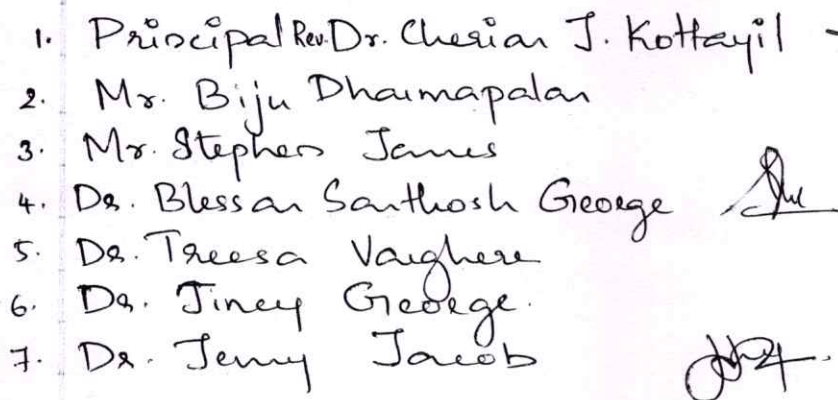 1. Principal Rev. Dr. Cherian J. Kottayil -
2. Mr. Biju Dharmapalan
3. Mr. Stephen James
4. Dr. Blessan Santhosh George
5. Dr. Treesa Varghese
6. Dr. Jincy George.
7. Dr. Jenny Jacob